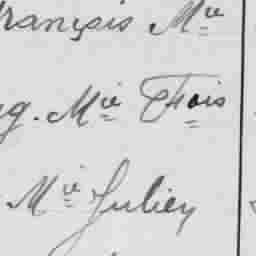 rançois Mie
g. Mie Fois
Mie Julien